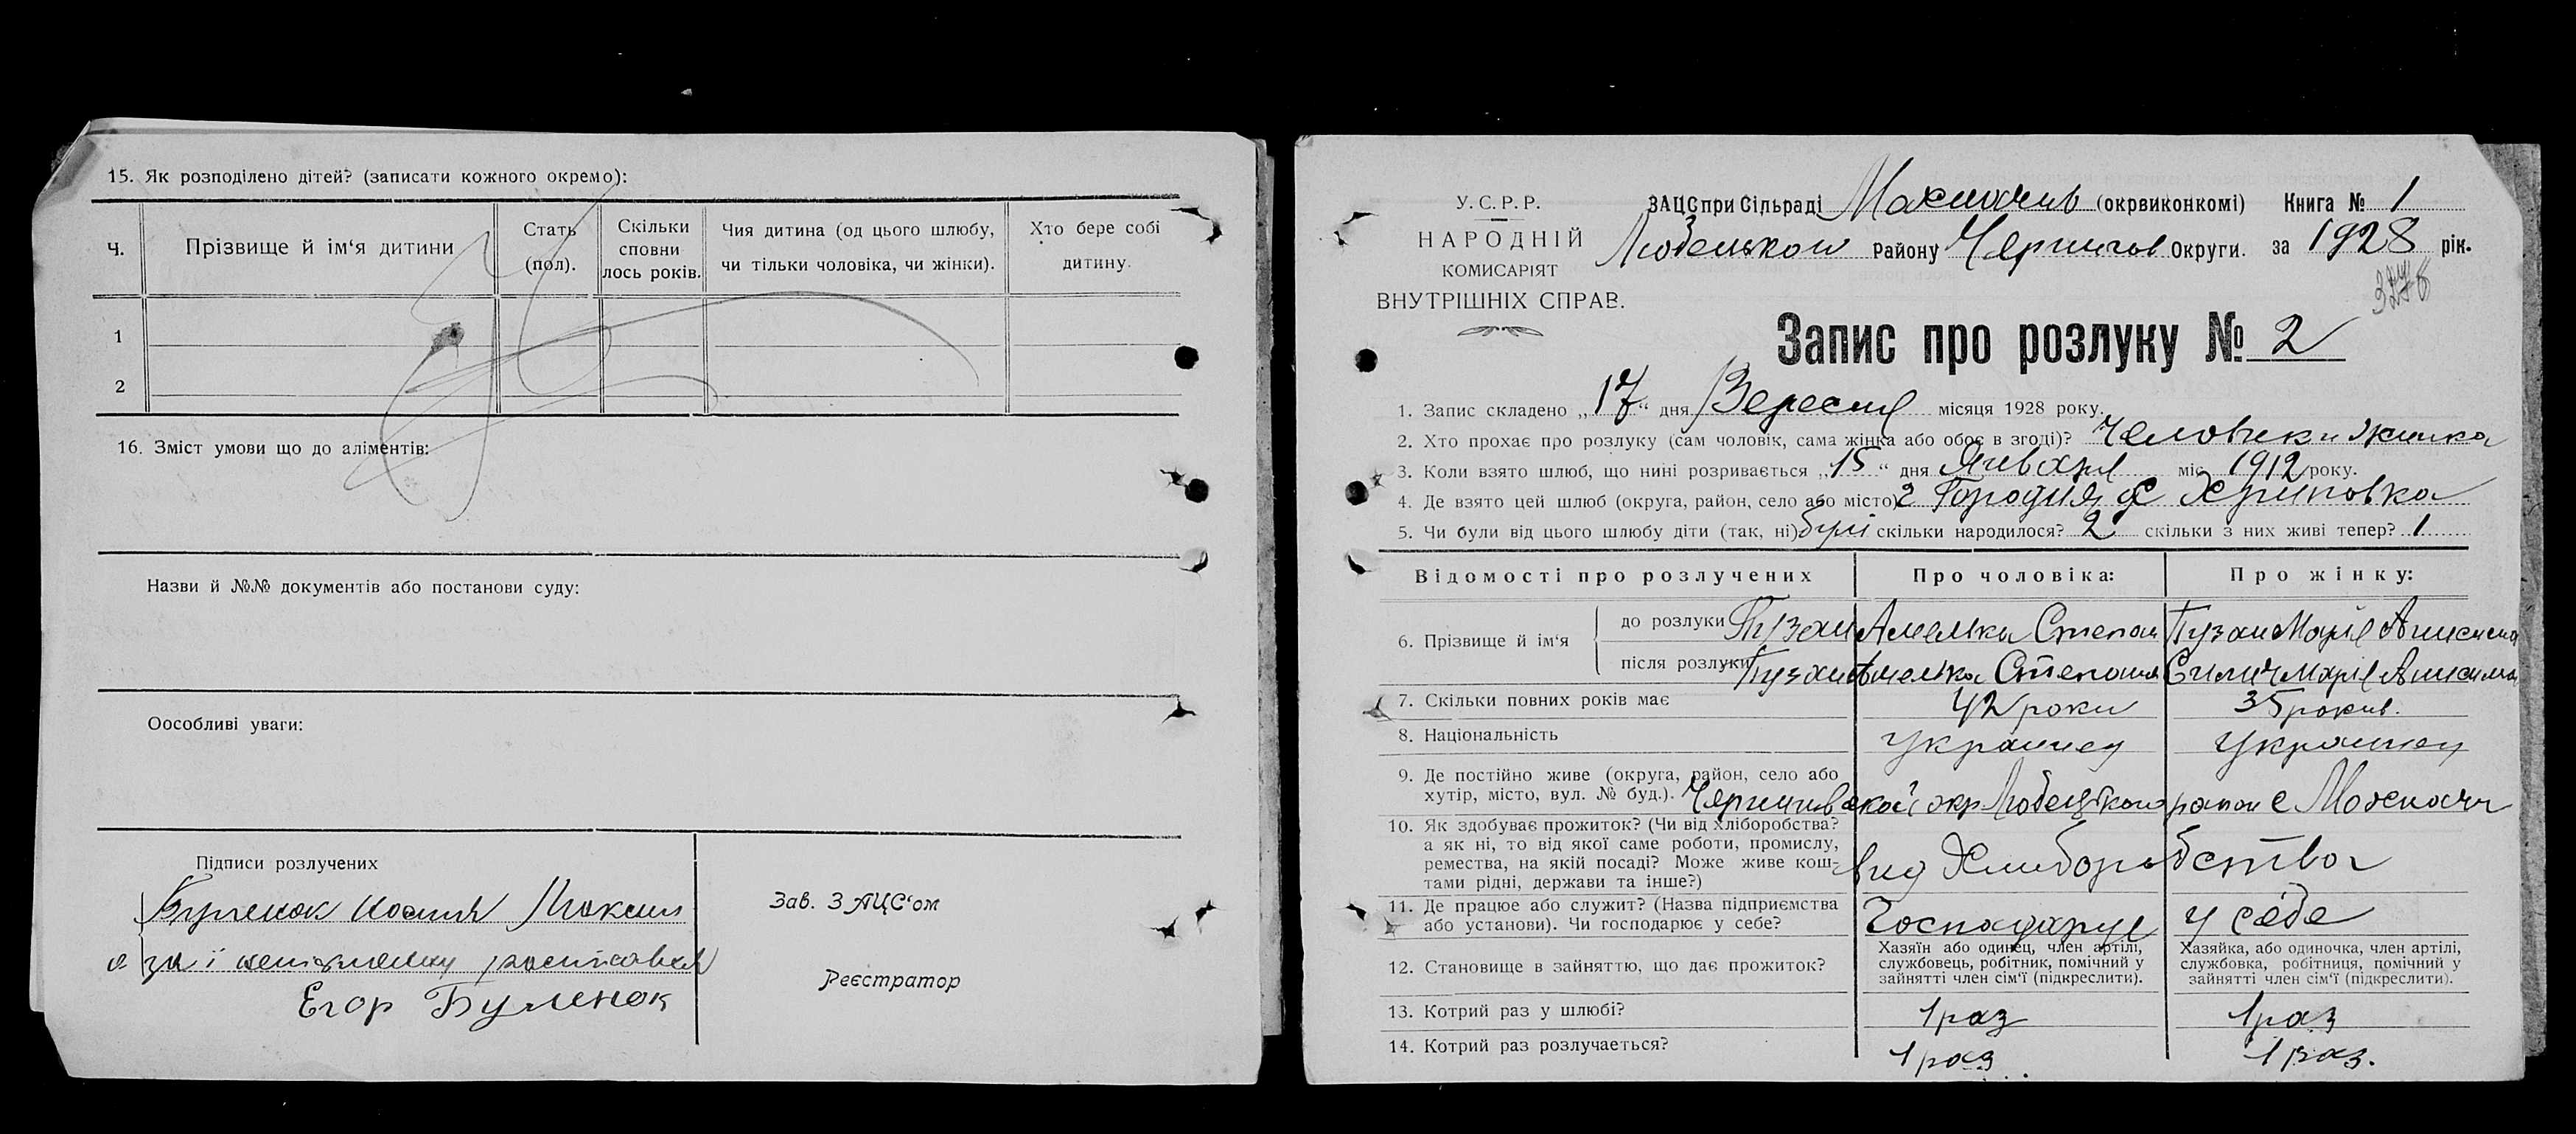 15. Як розподілено дітей? (записати кожного окремо):
Ч.
Прізвище й ім‘я дитини
Стать (пол).
Скільки сповни лось років.
Чия дитина (од цього шлюбу, чи тільки чоловіка, чи жінки).
Хто бере собі дитину.
1
2
16. Зміст умови що до аліментів:
Назви й №№ документів або постанови суду:
Оособливі уваги:
Підписи розлучених
Зав. ЗАЦС‘ом
Реєстратор
а за і
Егор Буленок
У.С.Р.Р.
НАРОДНІЙ
КОМИСАРІЯТ
ВНУТРІШНІХ СПРАВ.
ЗАЦС при Сільраді (окрвиконкомі) Книга № 1
Району Округи. за 1928 рік.
Запис про розлуку № 2
1. Запис складено „17“ дня Вересня місяця 1928 року.
2. Хто прохає про розлуку (сам чоловік, сама жінка або обоє в згоді)? Человик и жинка
3. Коли взято шлюб, що нині розривається „15“ дня Января міс 1912 року.
4. Де взято цей шлюб (округа, район, село або місто) Городня с Хриповка
5. Чи були від цього шлюбу діти (так, ні) булі скільки народилося? 2 скільки з них живі тепер? 1
Відомості про розлучених
Про чоловіка:
Про жінку:
6. Прізвище й ім‘я
до розлуки Пузан Амелка Степан Пузан Марія Анисима
після розлуки Пузан Амелка Марія Анисима
7. Скільки повних років має 42 роки 35 рокив.
8. Національність Украинец Украинец
9. Де постійно живе (округа, район, село або
хутір, місто, вул. № буд.). окр Любецького район с
10. Як здобуває прожиток? (Чи від хліборобства?
а як ні, то від якої саме роботи, промислу,
ремества, на якій посаді? Може живе кош-
тами рідні, держави та інше?)
вид Хлиборобства
11. Де працює або служит? (Назва підприємства
або установи). Чи господарює у себе?
Господарує у себе
12. Становище в зайняттю, що дає прожиток?
Хазяїн або одинец, член артілі,
службовець, робітник, помічний у
зайнятті член сім‘ї (підкреслити).
Хазяйка, або одиночка, член артілі,
службовка, робітниця, помічний у
зайнятті член сім‘ї (підкреслити).
13. Котрий раз у шлюбі? 1 раз 1 раз
14. Котрий раз розлучаеться? 1 раз 1 раз.